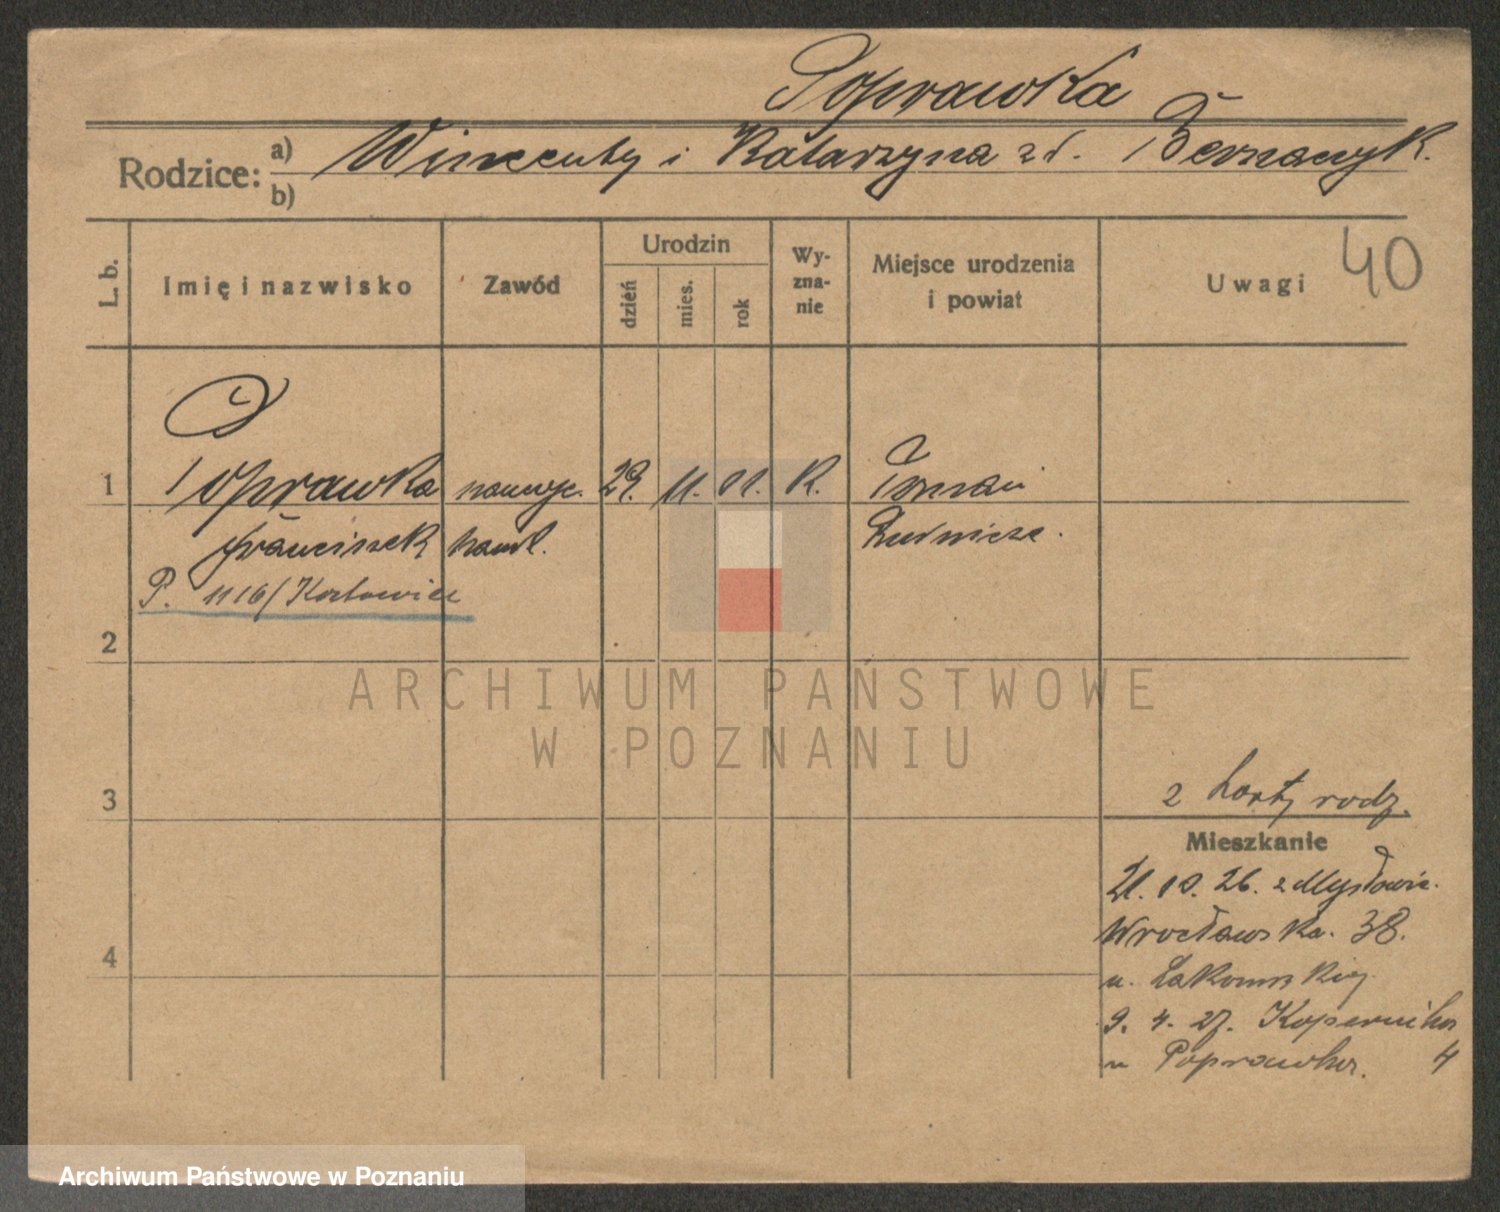 Poprawka
Rodzice: a) Wincenty i Katarzyna zd.
b)
L. b.
Imię i nazwisko
Zawód
Urodzin
dzień
mies.
rok
Wy-
zna-
nie
Miejsce urodzenia
i powiat
Uwagi
40
1 Poprawka naucz. 29. 11. 01. K.
Franciszek handl.
P. 1116/
2
3
4
2 karty rodz.
Mieszkanie
21. 10. 26. z Mysłowic.
Wrocławska. 38.
u.
9. 4. 27. Kopernika
u Poprawka. 4
ARCHIWUM PAŃSTWOWE
W POZNANIU
Archiwum Państwowe w Poznaniu